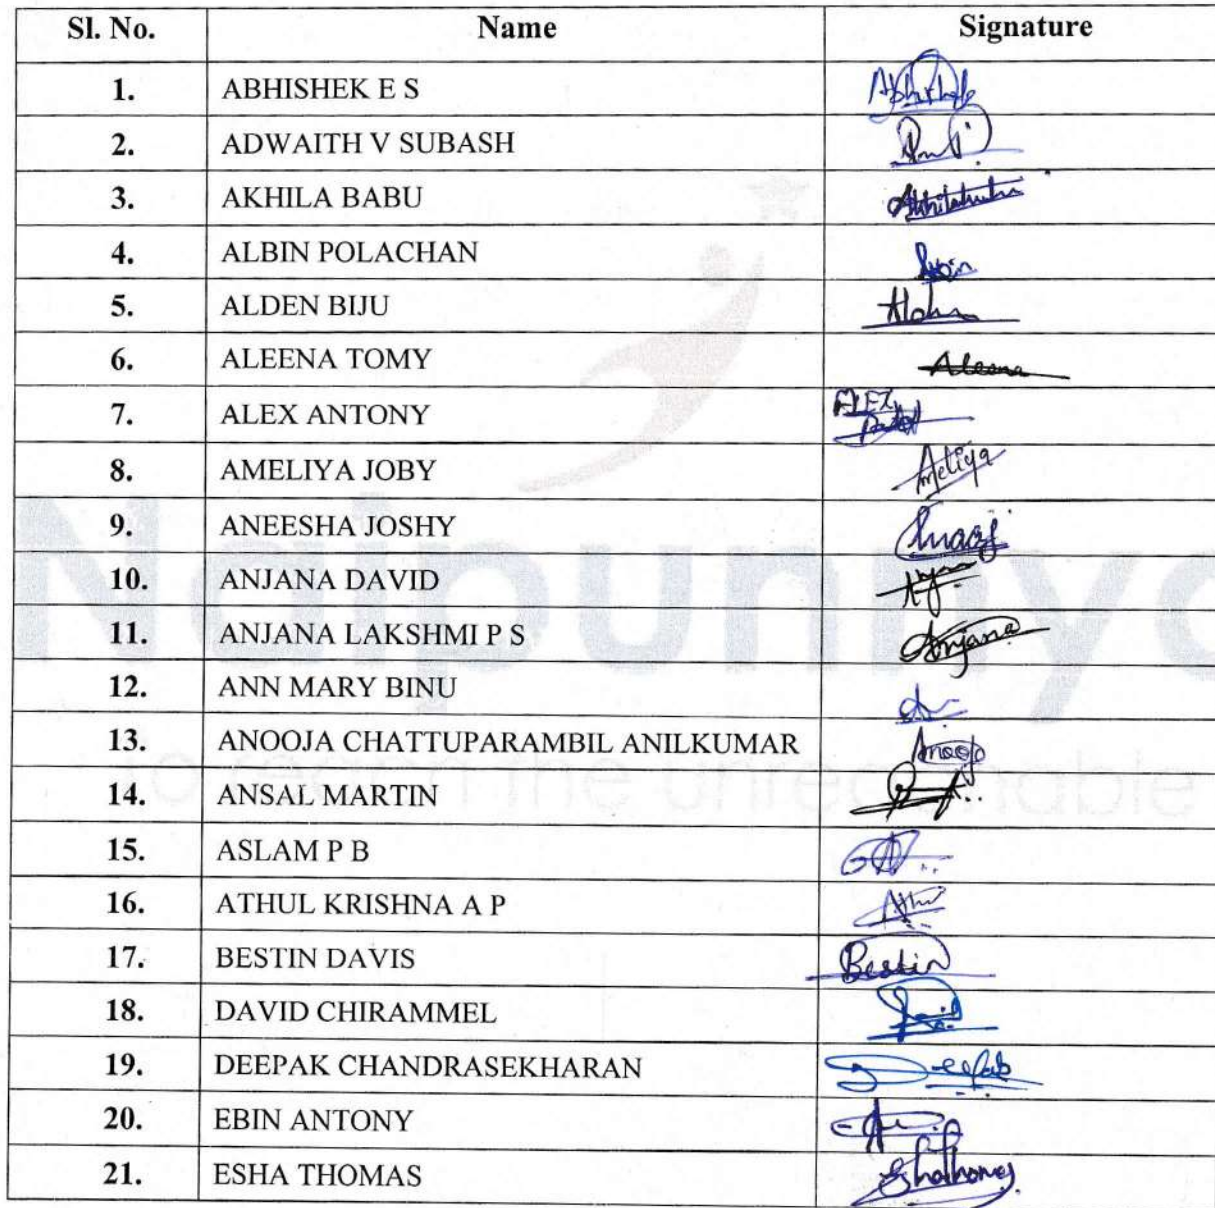 Sl. No. Name Signature
1. ABHISHEK E S Abhishek
2. ADWAITH V SUBASH
3. AKHILA BABU
4. ALBIN POLACHAN Albin
5. ALDEN BIJU Alden
6. ALEENA TOMY Aleena
7. ALEX ANTONY ALEX
8. AMELIYA JOBY Ameliya
9. ANEESHA JOSHY
10. ANJANA DAVID
11. ANJANA LAKSHMI P S Anjana
12. ANN MARY BINU
13. ANOOJA CHATTUPARAMBIL ANILKUMAR Anooja
14. ANSAL MARTIN
15. ASLAM P B
16. ATHUL KRISHNA A P Athul
17. BESTIN DAVIS Bestin
18. DAVID CHIRAMMEL
19. DEEPAK CHANDRASEKHARAN Deepak
20. EBIN ANTONY
21. ESHA THOMAS Eshathomas
Naipunnya
To reach the unreachable